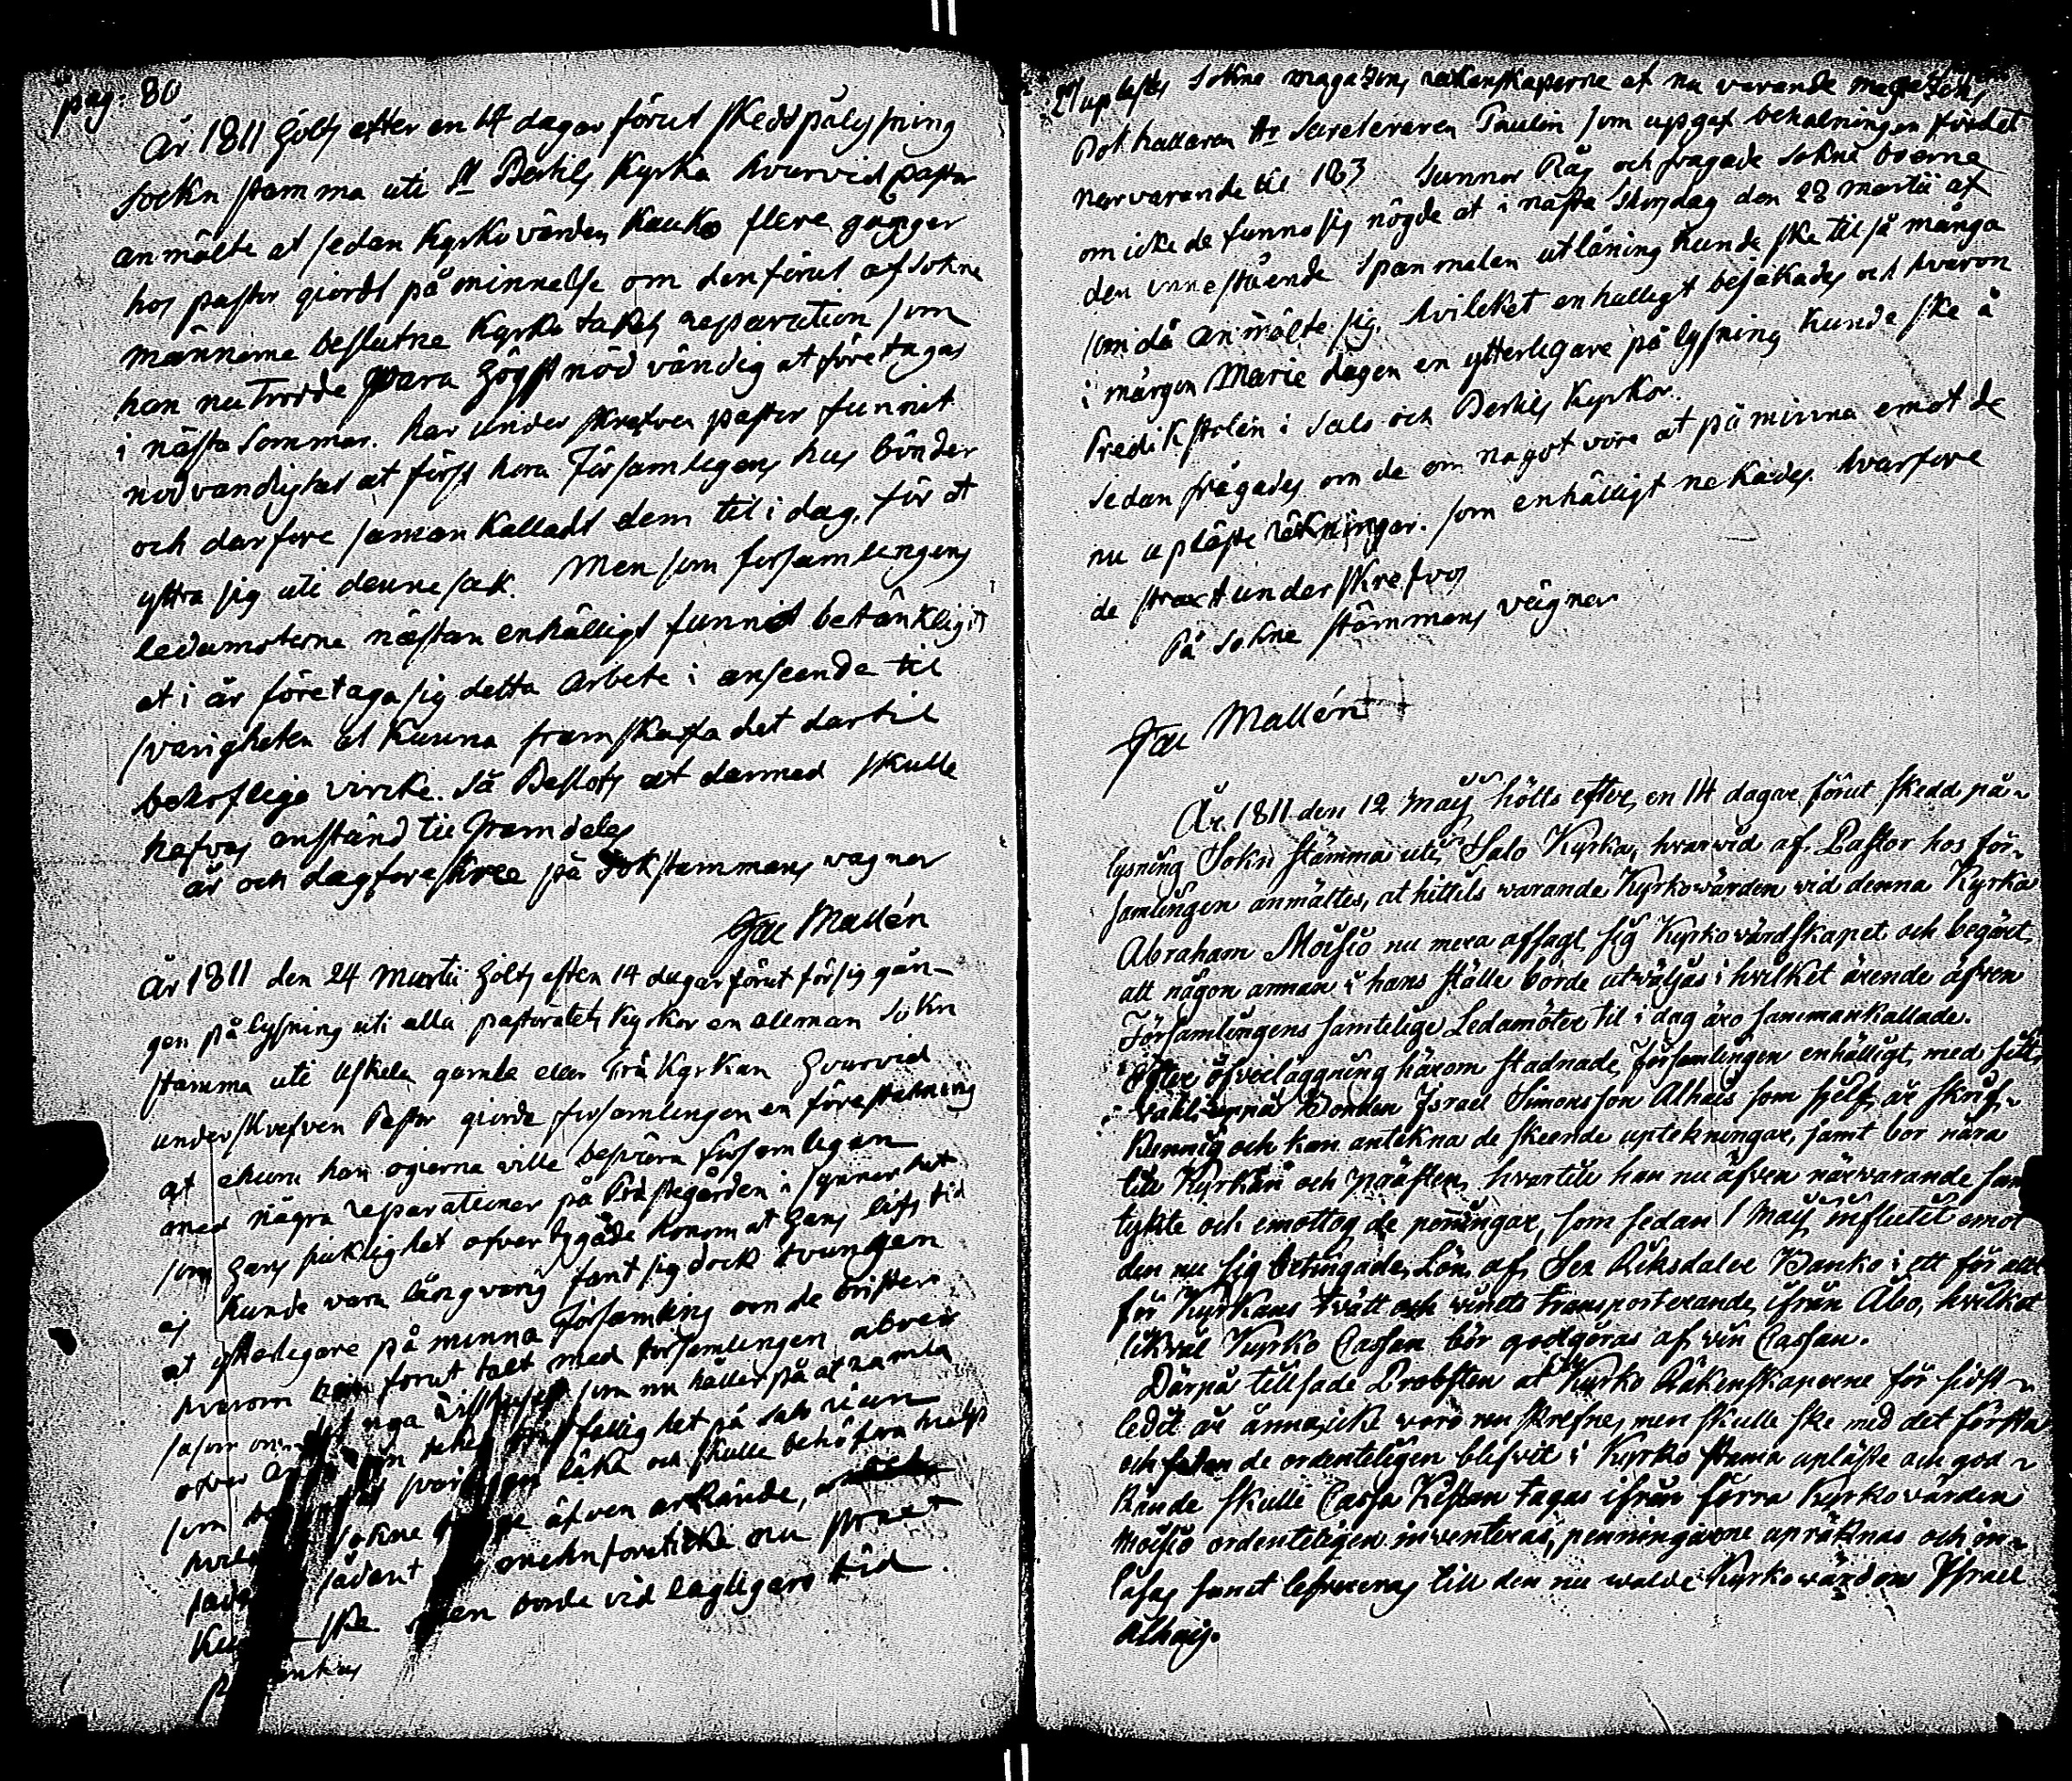 pag: 80
År 1811 Höltz efter en 14 dagar förut skedd pålysning
sockn stamma uti St Bertils Kyrka hvarvid pastor
anmälte at sedan Kyrkovärden Kauko flere gånger
hos pastor giordt påminnelse om den förut af sokne
männerne beslutne Kyrko takets reparation som
han nu trodde vara högst nödvändig at företagas
i nästa Sommar. har underskrefven pastor funnit
nödvandighet at först hora Församlingens hus bönder
och darfore samankalladt dem til i dag, för at
yttra sig uti denne sak. Men som forsamlingens
ledamoterne nästan enhälligt funnit betänkligit
at i år företaga sig detta Arbete i anseende til
svarigheten at kunna framskaffa det dartil
behoflige virke. Så Beslots at darmed skulle
hafvas anstånd til framdeles
år och dag foreskree på Sokstammans vagnar
Jac Mallén
År 1811 den 24 Martii Höltz eften 14 dagar förut försig gån-
gen på lysning uti alla pastoratets Kyrkor en allman Sokn
stamma uti Uskela gamla eller Trä Kyrkan Hvarvid
underskrefven Pastor giorde forsamlingen en föreställning
at ehuru han ogierna ville besvära församlingen
med några reparationer på Prästegården i synnerhet
som Hans siuklighet ofvertygade honom at Hans lifs tid
ej kunde vara långvarig fant sig dock tvungen
at ytterligare på minna Församling om de brister
hvarom han forut talt med församlingen
såsom som nu håller på at ramla
ofver taket på Salo rian
som och skulle behöfva hielp
sokne äfven erkände,
sådant nu strax
ske. men borde vid lagligare tid

2) uplästes Sokne magazens räkenskaperne af nu varande magazens
Bokhallaren Hr Secreteraren Paulin som upgaf behalningen för det
narvarande til 183 Tunnor Råg och frågade Sokne boerne
om icke de funno sig nögde at i nästa Thorsdag den 28 Martii af
den innestående Spanmalen utlåning kunde ske til så många
som då anmälte sig. hvilcket enhalligt bejakades och hvarom
i märgon Marie dagen en ytterligare på lysning kunde ske å
Predikstolen i Salo och Bertils Kyrkor.
Sedan frågades om de om nagot vore at på minna emot de
nu uplåste räkningar. som enhälligt nekades. hvarfore
de straxt underskrefvos
På Sokne stämmans vägnar
Jac Mallén
År 1811 den 12 Maij hölts efter en 14 dagar förut skedd på-
lysning Sokn stämma uti Salo Kyrka, hvarvid af Pastor hos för-
samlingen anmältes, at hittils warande Kyrkowärden vid denna Kyrka
Abraham Moisio nu mera afsagt sig Kyrkowärdskapet och begärt
att någon annan i hans ställe borde utwäljas i hvilket ärende äfven
Församlingens samtelige Ledamöter til i dag äro sammankallade.
Efter öfverläggning härom stadnade församlingen enhälligt med sitt
wahl uppå Bonden Israel Simonsson Alhais som sjelf är skrif-
kunnig och kan antekna de skeende uptekningar, samt bor nära
till Kyrkan och Prästen, hvartill han nu äfven närvarande sam
tykte och emottog de penningar, som sedan 1 Maij influtit emot
den nu sig betingade Lön af Sex Riksdaler Banko i ett för allt
för Kyrkans twätt och winets transporterande ifrån Åbo, hvilket
likväl Kyrko Cassan bör godgöras af vin Cassan.
Därpå tillsade Probsten at Kyrko Räkenskaperne för sidst-
ledet år ännu icke woro nu skrefne, men skulle ske med det första
och sedan de ordenteligen blifvit i Kyrko stämma upläste och god-
kände skulle Cassa Kistan tagas ifrån förra Kyrkowärden
Moisio ordenteligen inventeras, penningarne upräknas och in-
låsas samt lefvereras till den nu walde Kyrkowärden Israel
Alhais.